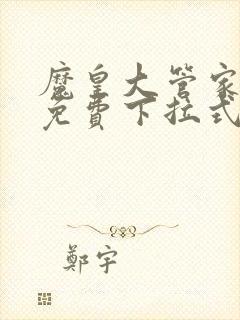 魔皇大管家
免費下拉式
鄭宇